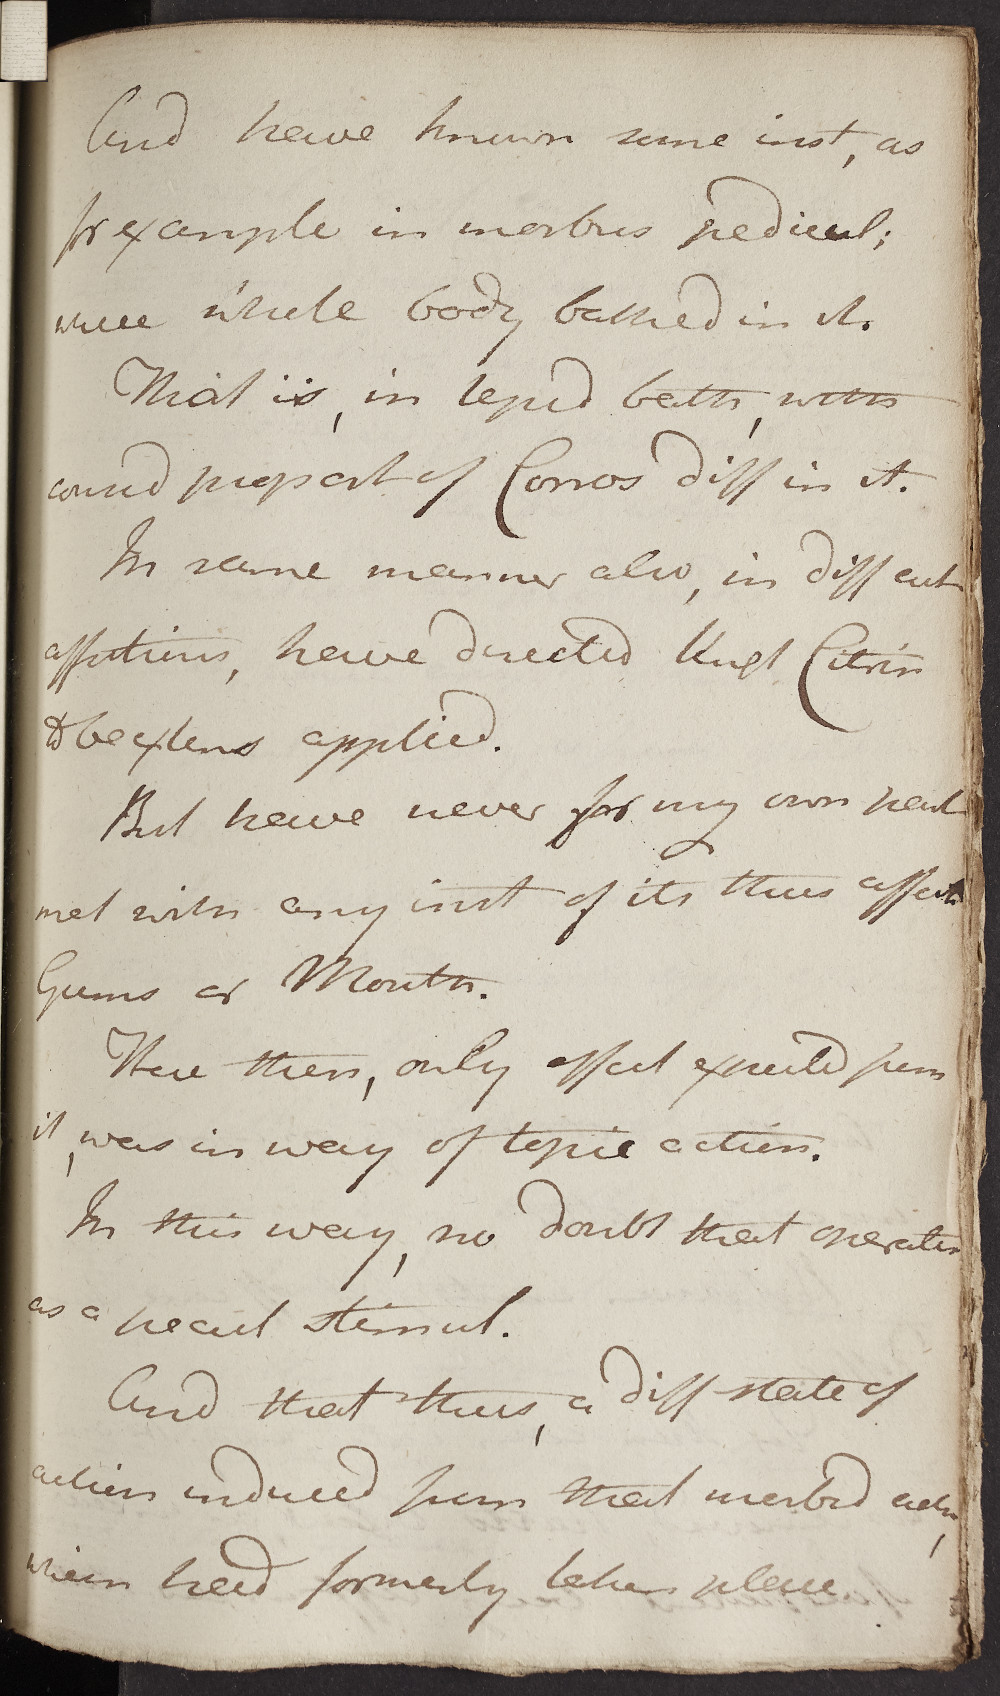 And have known some inst, as
for example in morbus pedicul;
where whole body bathed in it.
That is, in tepid bath, with
consid proport of Corros diss in it.
In same manner also, in diff cut
affections, have directed Ungt Citrin
to be extens applied.
But have never for my own part
met with any inst of its thus affect
Gums or Mouth.
Here then, only effect expected from
it, was in way of topic action.
In this way, no doubt that operates
as a pecul stimul.
And that thus, a diff state of
action induced from that morbid actn,
which had formerly taken place.